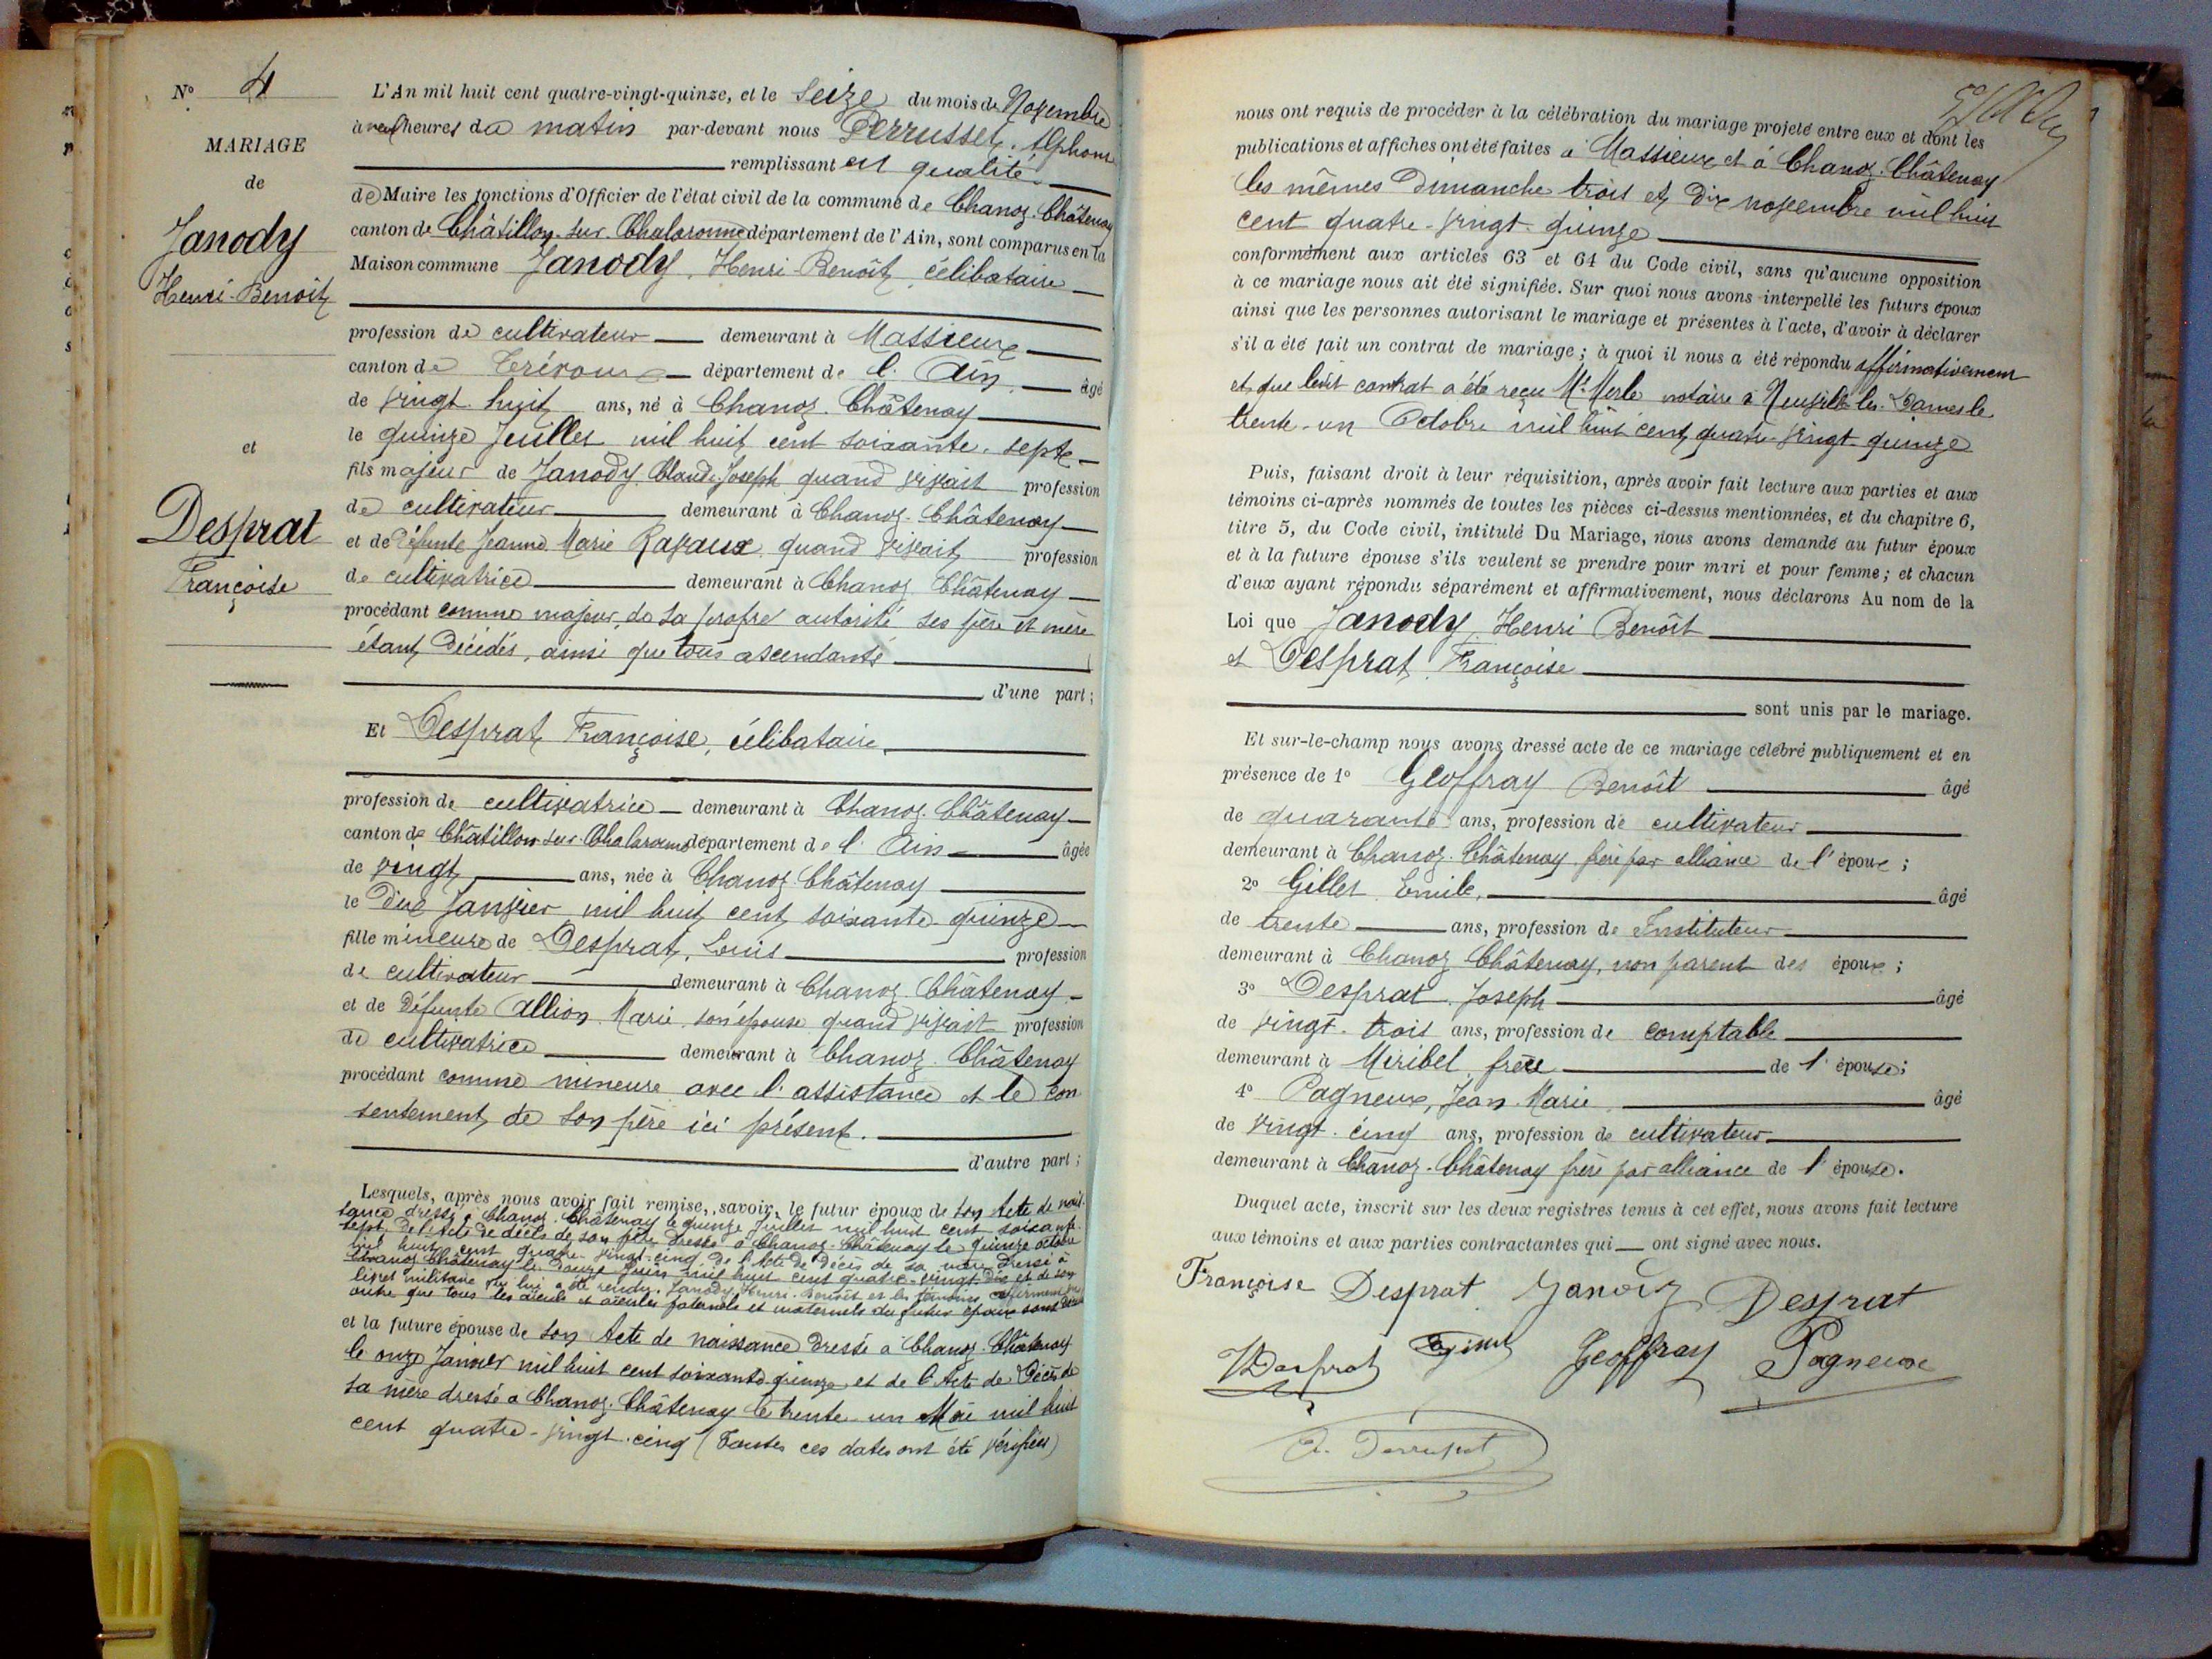 N° 4
MARIAGE
de
Janody
Henri-Benoit
et
Desprat
Françoise
L'An mil huit cent quatre-vingt-quinze, et le Seize du mois de Novembre
à neuf heures du matin par-devant nous Perrusset, Alphonse
remplissant en qualité
de Maire les fonctions d'Officier de l'état civil de la commune de Chanoz-Châtenay
canton de Châtillon-sur-Chalaronne département de l'Ain, sont comparus en la
Maison commune Janody, Henri-Benoît, célibataire
profession de cultivateur demeurant à Massieux
canton de Trévoux département de l'Ain, âgé
de vingt huit ans, né à Chanoz-Châtenay
le quinze Juillet mil huit cent soixante-sept
fils majeur de Janody Claude Joseph quand vivait profession
de cultivateur demeurant à Chanoz-Châtenay
et de défunte Jeanne Marie Ravaux quand vivait profession
de cultivatrice demeurant à Chanoz Châtenay
procédant comme majeur, de sa propre autorité ses père et mère
étant décédés, ainsi que tous ascendants
d'une part;
Et Desprat Françoise, célibataire,
profession de cultivatrice demeurant à Chanoz-Châtenay
canton de Châtillon-sur-Chalaronne département de l'Ain âgée
de vingt ans, née à Chanoz-Châtenay
le dix Janvier mil huit cent soixante-quinze
fille mineure de Desprat, Louis profession
de cultivateur demeurant à Chanoz-Châtenay
et de défunte Allion Marie son épouse quand vivait profession
de cultivatrice demeurant à Chanoz-Châtenay
procédant comme mineure avec l'assistance et le con-
sentement de son père ici présent.
d'autre part;
Lesquels, après nous avoir fait remise, savoir, le futur époux de son Acte de nais-
sance dressé à Chanoz-Châtenay le quinze Juillet mil huit cent soixante-
sept, de l'Acte de décès de son père dressé à Chanoz-Châtenay le quinze octobre
mil huit cent quatre-vingt-cinq, de l'Acte de décès de sa mère dressé à
Chanoz-Châtenay le douze Juin mil huit cent quatre-vingt-dix et de son
livret militaire qui lui a été rendu. Janody, Henri-Benoît et les témoins affirment en
outre que tous les aïeuls et aïeules paternels et maternels du futur époux sont décédés
et la future épouse de son Acte de naissance dressé à Chanoz-Châtenay
le onze Janvier mil huit cent soixante-quinze et de l'Acte de décès de
sa mère dressé à Chanoz-Châtenay le trente-un Mai mil huit
cent quatre-vingt-cinq (Toutes ces dates ont été vérifiées)
nous ont requis de procéder à la célébration du mariage projeté entre eux et dont les
publications et affiches ont été faites à Massieux et à Chanoz-Châtenay
les mêmes Dimanche trois et dix novembre mil huit
cent quatre-vingt-quinze
conformément aux articles 63 et 64 du Code civil, sans qu'aucune opposition
à ce mariage nous ait été signifiée. Sur quoi nous avons interpellé les futurs époux
ainsi que les personnes autorisant le mariage et présentes à l'acte, d'avoir à déclarer
s'il a été fait un contrat de mariage; à quoi il nous a été répondu affirmativement
et que ledit contrat a été reçu Me Merle notaire à Neuville-les-Dames le
trente-un Octobre mil huit cent quatre-vingt-quinze
Puis, faisant droit à leur réquisition, après avoir fait lecture aux parties et aux
témoins ci-après nommés de toutes les pièces ci-dessus mentionnées, et du chapitre 6,
titre 5, du Code civil, intitulé Du Mariage, nous avons demandé au futur époux
et à la future épouse s'ils veulent se prendre pour mari et pour femme; et chacun
d'eux ayant répondu séparément et affirmativement, nous déclarons Au nom de la
Loi que Janody, Henri Benoît
et Desprat, Françoise
sont unis par le mariage.
Et sur-le-champ nous avons dressé acte de ce mariage célébré publiquement et en
présence de 1° Geoffray Benoît âgé
de quarante ans, profession de cultivateur
demeurant à Chanoz-Châtenay frère par alliance de l'époux;
2° Gillet Emile, âgé
de trente ans, profession de Instituteur
demeurant à Chanoz Châtenay, non parent des époux;
3° Desprat, Joseph âgé
de vingt-trois ans, profession de comptable
demeurant à Miribel frère de l'épouse;
4° Pagneux, Jean-Marie âgé
de vingt-cinq ans, profession de cultivateur
demeurant à Chanoz-Châtenay frère par alliance de l'épouse.
Duquel acte, inscrit sur les deux registres tenus à cet effet, nous avons fait lecture
aux témoins et aux parties contractantes qui ont signé avec nous.
Françoise Desprat Janody Desprat
Desprat Geoffray Pagneux
A. Perrusset